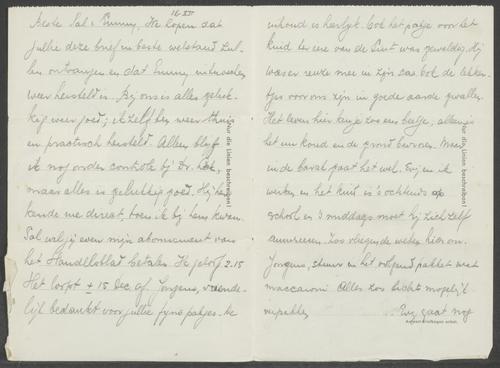 16 XII
Beste Sal & Emmy, We hopen dat
jullie deze brief in beste welstand zul-
len ontvangen en dat Emmy intusschen
weer hersteld is. Bij ons is alles geluk-
kig weer goed; ik zelf ben weer thuis
en practisch hersteld. Alleen blijf
ik nog onder controle bij Dr.
maar alles is gelukkig goed. Hij her-
kende me direct, toen ik bij hem kwam.
Sal wil jij even mijn abonnement van
het Handelsblad betalen. Ik geloof 2.15
Het loopt ± 15 Dec af. Jongens, vriende-
lijk bedankt voor jullie fijne pakjes. De
inhoud is heerlijk. Ook het pakje voor het
kind ter eere van de Sint was geweldig. Hij
was er reuze mee in zijn sas. Ook de lekker-
tjes voor ons zijn in goede aarde gevallen.
Het leven hier ken je zoo een beetje, alleen is
het nu koud en de grond bevroren. Maar
in de barak gaat het wel. Evy en ik
werken en het kind is 's ochtends op
school en 's middags moet hij zich zelf
amuseeren. Zoo vliegen de weken hier om.
Jongens, stuur in het volgend pakket wat
maccaroni Alles zoo licht mogelijk
verpakken Evy gaat nog
Nur die Linien beschreiben!
Nur die Linien beschreiben!